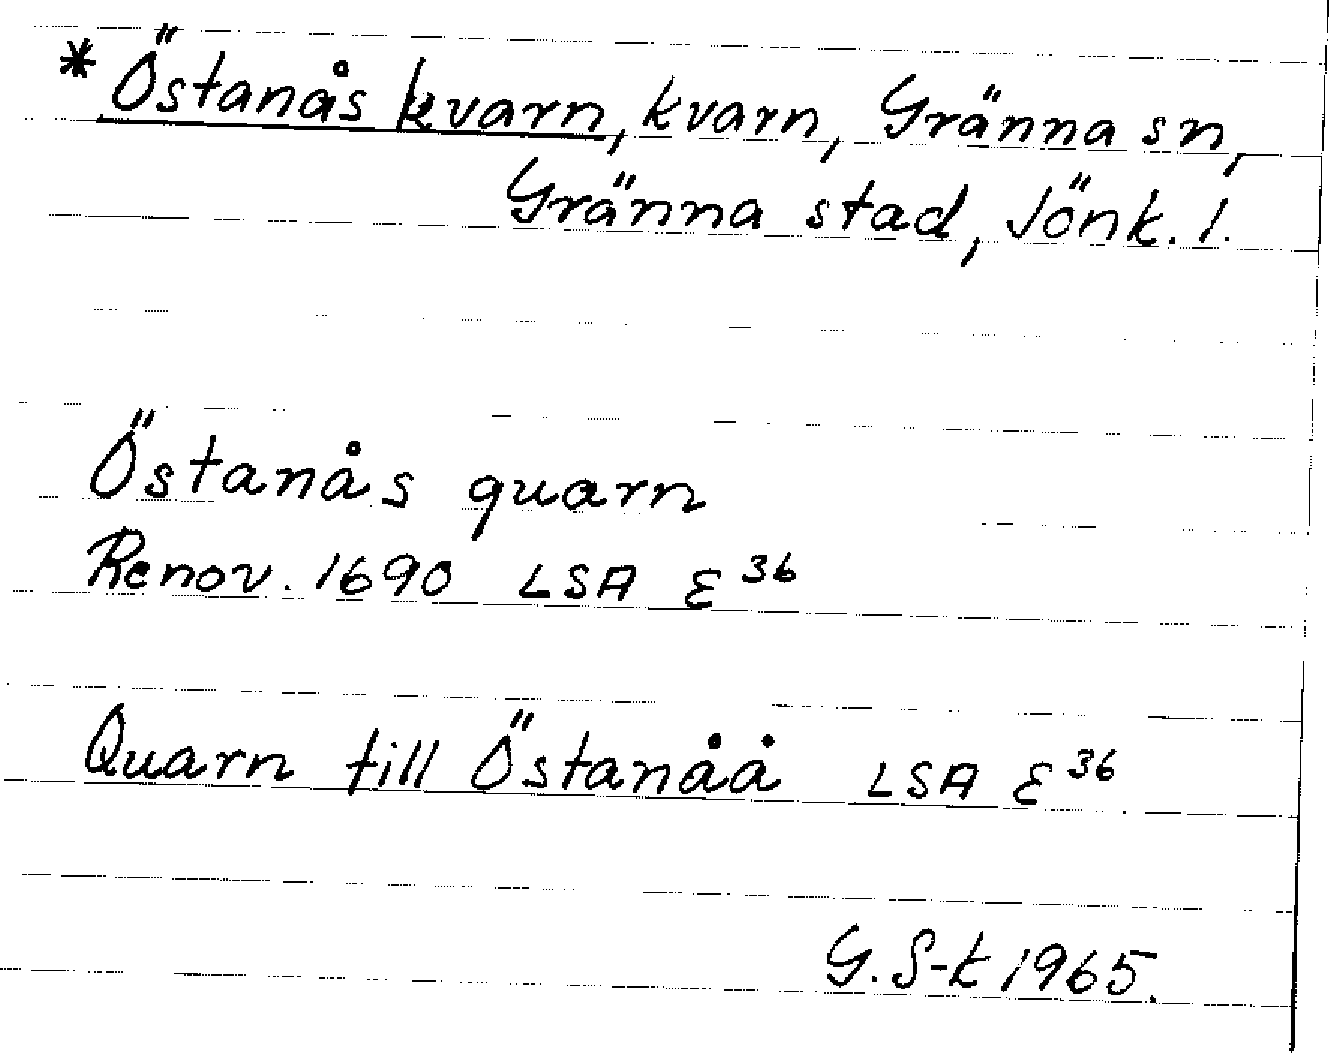 * Östanås kvarn, kvarn, Gränna sn,
Gränna stad, Jönk. l.
Östanås quarn
Renov. 1690 LSA E 36
Quarn till Östanåå LSA E 36
G. S-k 1965.